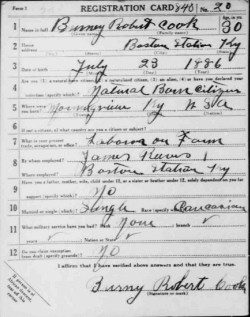 Form 1 REGISTRATION CARD No. 20
1 Name in full Burney Robert Cook Age, in yrs. 30
(Family name)
2 Home address Boston Station Ky
3 Date of birth July 23 1886
4 Are you (1) a natural-born citizen, (2) a naturalized citizen, (3) an alien, (4) or have you declared your intention (specify which)? Natural Born Citizen
5 Where were you born? Ky U S A
6 If not a citizen, of what country are you a citizen or subject?
7 What is your present trade, occupation, or office? Laborer on Farm
8 By whom employed? James
Where employed? Boston Station Ky
9 Have you a father, mother, wife, child under 12, or a sister or brother under 12, solely dependent on you for support (specify which)? No
10 Married or single (which)? Single Race (specify which)? Caucasian
11 What military service have you had? Rank None branch
years Nation or State
12 Do you claim exemption from draft (specify grounds)? No
I affirm that I have verified above answers and that they are true.
Robert Cook
(Signature or mark)